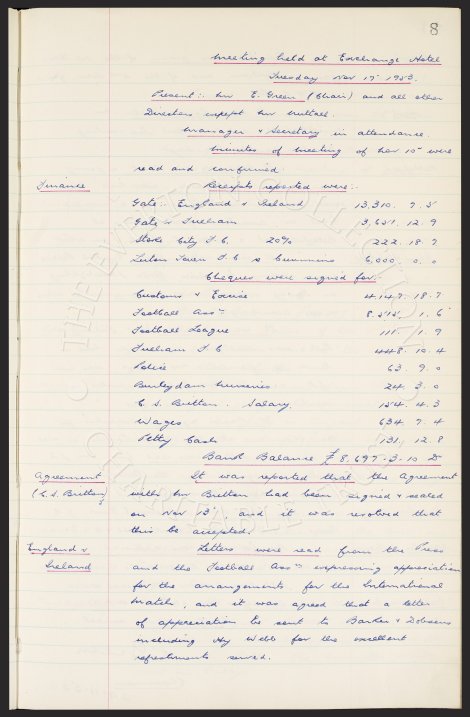 8
Meeting held at Exchange Hotel
Tuesday Nov 17th 1953.
Present:- Mr E. Green (Chair) and all other
Directors except Mr Nuttall.
Manager & Secretary in attendance.
Minutes of meeting of Nov 10th were
read and confirmed.
Finance Receipts reported were:-
Gate:- England v Ireland 13,310. 7. 5
Gate v Fulham 3,651. 12. 9
Stoke City F.C. 20% 222. 18. 7
Luton Town F.C. Cummins 6,000. 0. 0
Cheques were signed for:-
Customs & Excise 4147. 18. 7
Football Assn 8,515. 1. 6
Football League 111. 1. 9
Fulham F.C 448. 10. 4
Police 63. 9. 0
Burleydam Nurseries 24. 3. 0
C. S. Britton. Salary. 154. 4. 3
Wages 634. 7. 4
Petty Cash 131. 12. 8
Bank Balance £8,697-3-10 D
Agreement It was reported that the Agreement
(C.S. Britton) with Mr Britton had been signed & sealed
on Nov 13th and it was resolved that
this be accepted.
England v Letters were read from the Press
Ireland and the Football Assn expressing appreciation
for the arrangements for the International
Match, and it was agreed that a letter
of appreciation be sent to Barker & Dobsons
including Hy Webb for the excellent
refreshments served.
THE EVERTON COLLECTION
CHARITABLE TRUST